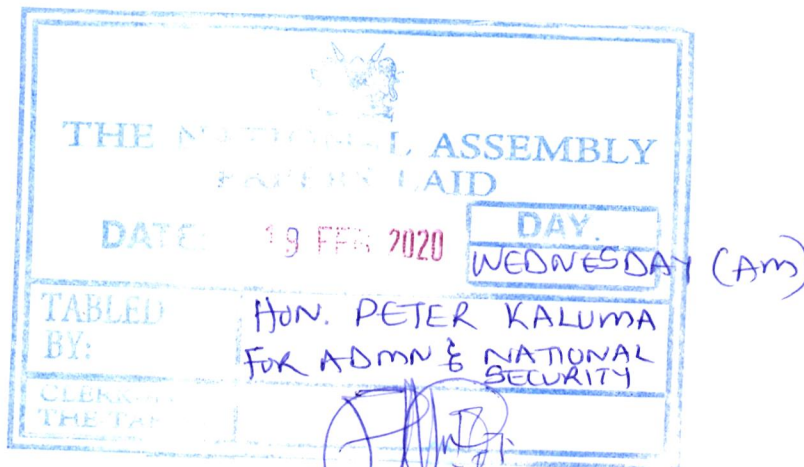 THE NATIONAL ASSEMBLY
PAPERS LAID
DATE: 19 FEB 2020 DAY.
WEDNESDAY (Am)
TABLED BY: HON. PETER KALUMA
FOR ADMN & NATIONAL SECURITY
THE